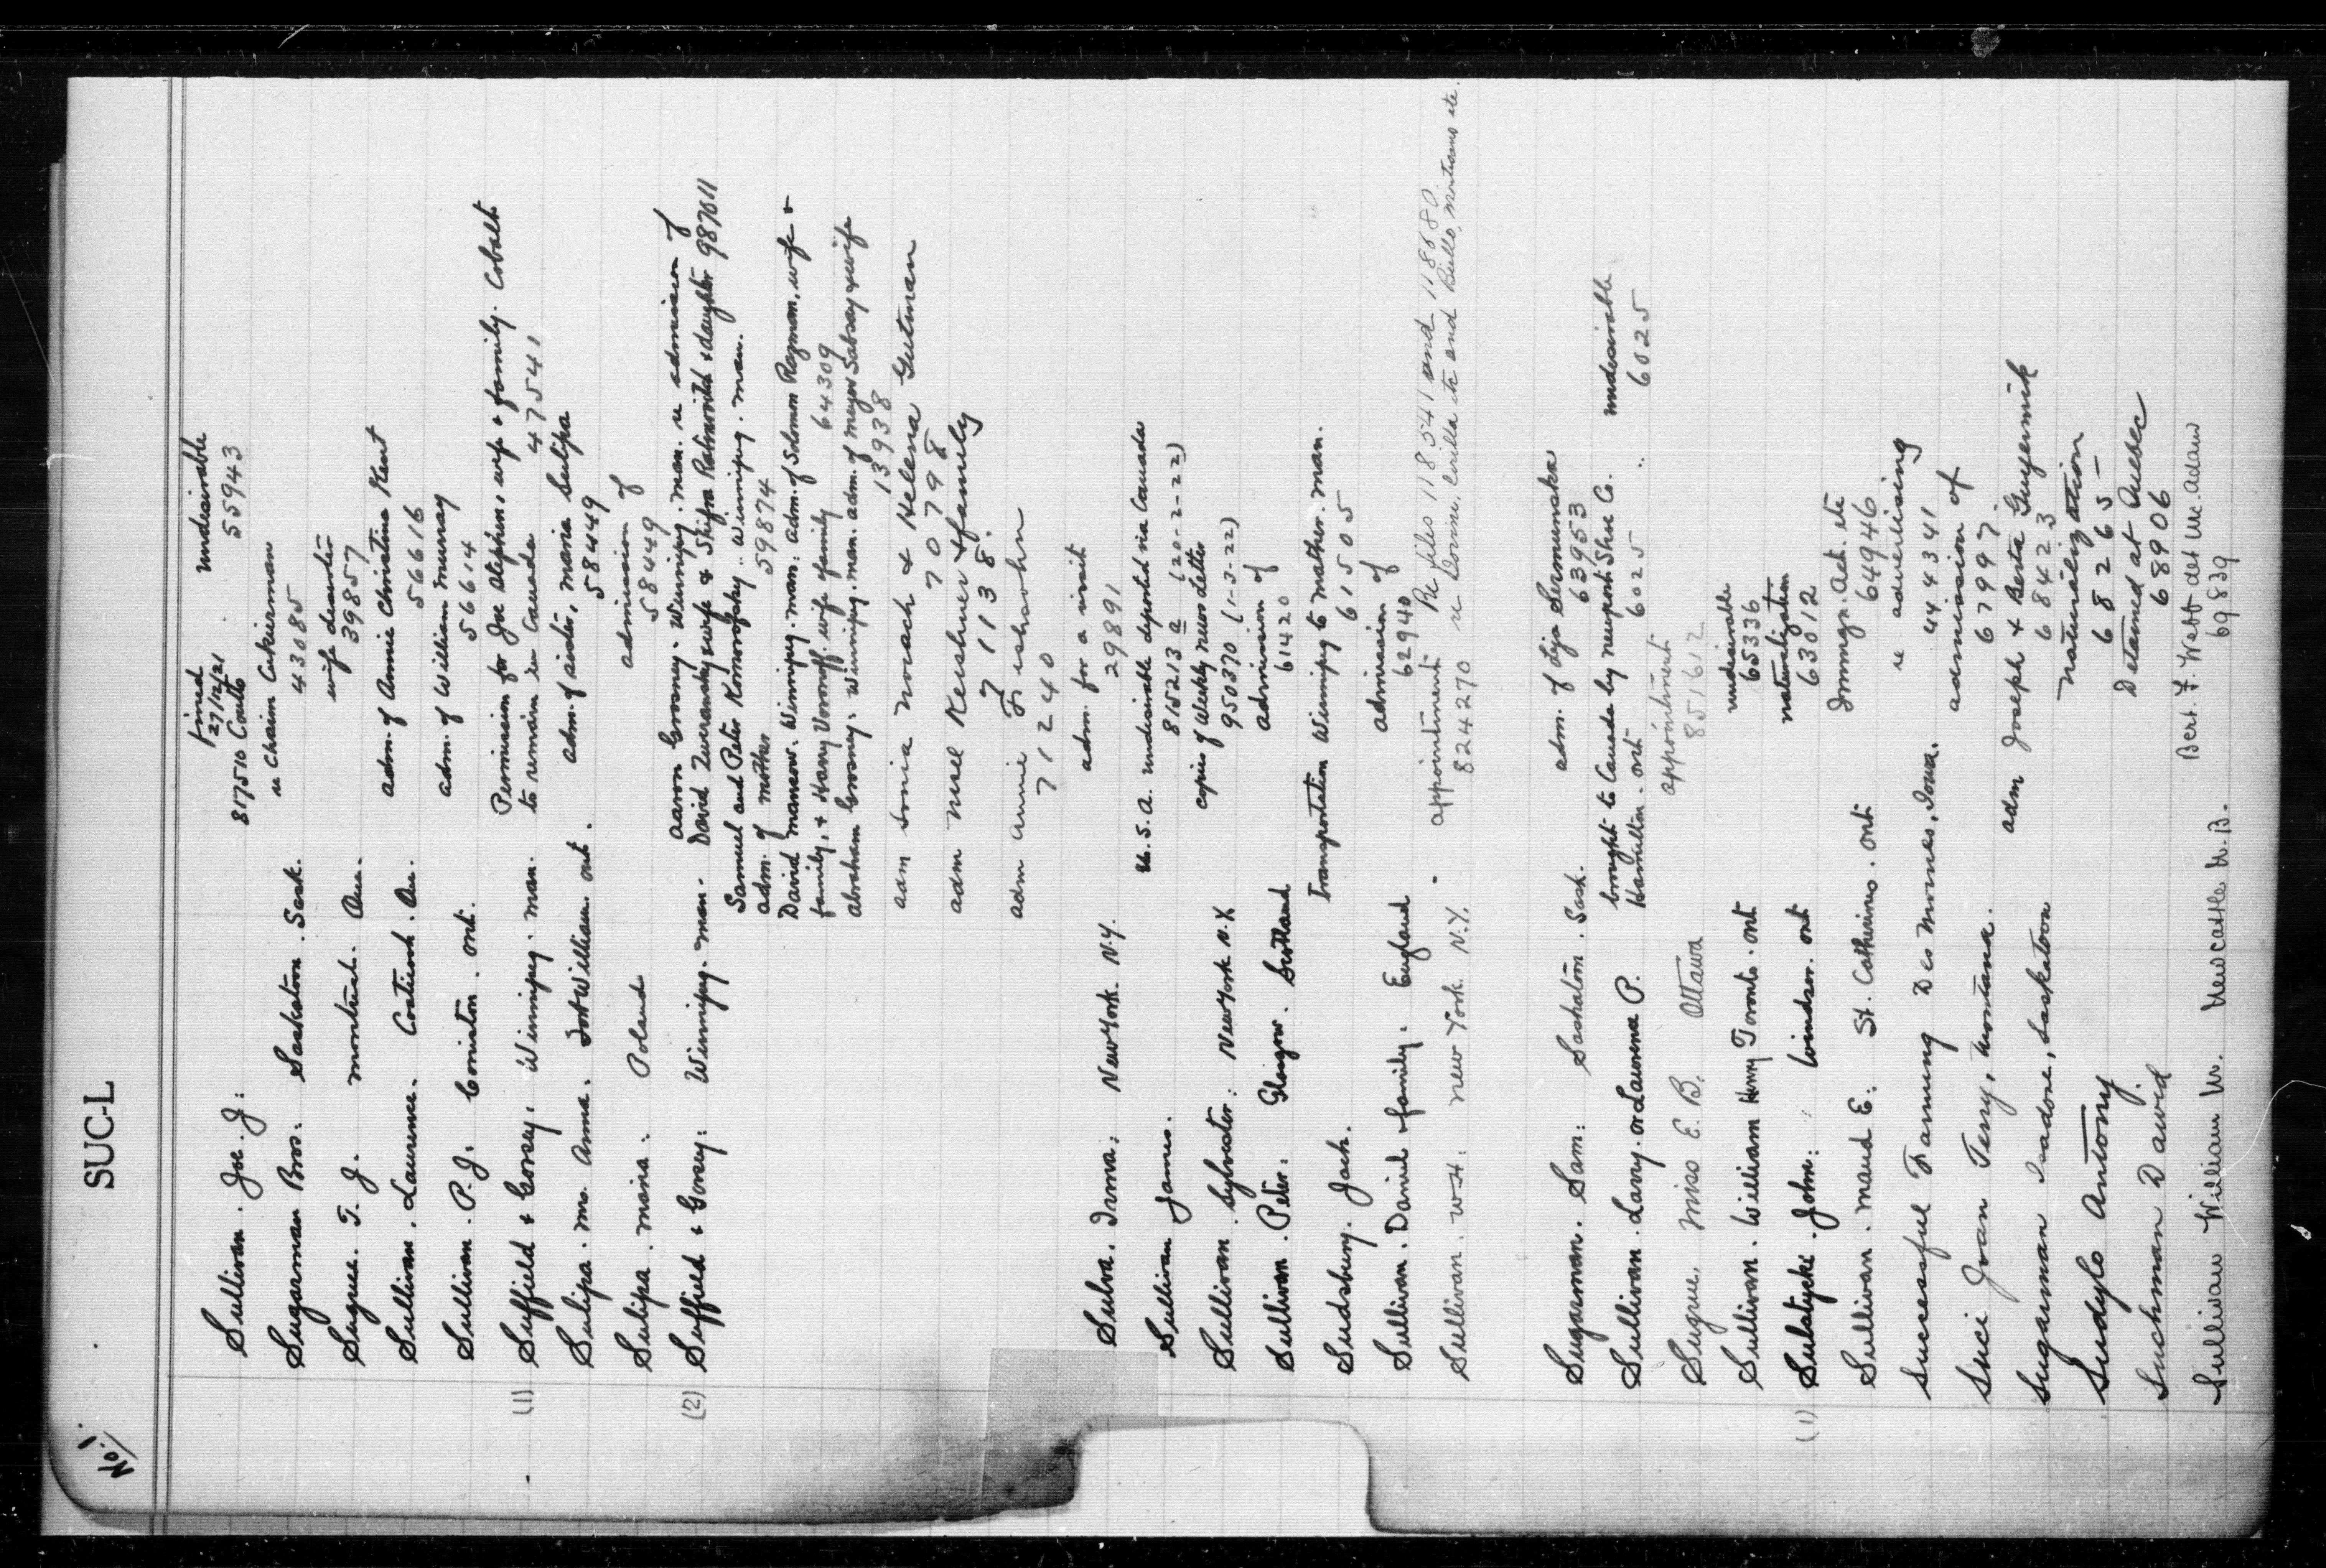 No. 1.
SUC-L
Sullivan. Joe. J: fined 27/12/21 undesirable
817510 Coutts 55943
Sugarman Bros. Saskatoon. Sask. re Chaim Cukierman
43085
Sugrue. T. J. montreal. Que. wife deserter
39857
Sullivan. Laurence. Coaticook. Que. adm. of Annie Christina Kent
56616
Sullivan. P. J. Coniston. Ont. adm. of William Murray
56614
(1) Suffield & Corey. Winnipeg. Man. Permission for Joe Stephens, wife & family. Cobalt
to remain in Canada 47541
Sulipa. Mrs. Anna. Fort William. Ont. adm. of sister, Maria Sulipa
58449
Sulipa. Maria. Poland admission of
58449
(2) Suffield & Gorsey: Winnipeg. Man. Aaron Grosney. Winnipeg. Man. re admission of
David & wife & Shifra Rabinovitch & daughter 987011
Samuel and Peter Komorofsky.. Winnipeg. Man.
adm. of mother 59874
David Manasow. Winnipeg. Man: adm. of Solomon Rozman, wife &
family, & Harry Voronoff. wife & family 64309
Abraham Grosney: Winnipeg. Man. adm. of Meyer Sabsay & wife
13938
adm Sonia Novach & Hellena Gutman
70798
adm Nusel Kershner & family
71138.
adm Annie Fishsohn
71240
Sulva. Irma: New York. N.Y. adm. for a visit
29891
Sullivan James. U.S.A. undesirable deported via Canada
815213 a (20-2-22)
Sullivan. Sylvester: New York N.Y. copies of Weekly News Letter
950370 (1-3-22)
Sullivan. Peter: Glasgow. Scotland admission of
61420
Sudsbury. Jack. Transportation Winnipeg to Mather. Man.
61505
Sullivan. Daniel & family. England admission of
62940
Sullivan. W.H. New York. N.Y. appointment Re files 118541 and 118680
824270 re Cirilla etc and
Sugarman. Sam: Saskatoon. Sask. adm. of Lija Sermunska
63953
Sullivan. Larry. or Laurence P. brought to Canada by Newport Shoe Co. undesirable
Hamilton. Ont 6025 .. 6025
Sugrue. Miss E. B. Ottawa appointment
851612
Sullivan. William Henry Toronto. Ont undesirable
65336
(1) Sulstycke. John: Windsor. Ont naturalization
63012
Sullivan. Maud E. St. Catharines. Ont Immgr. Act. etc
64946
Successful Farming Des Moines, Iowa. re advertising
444341
Suci Joan Terry, Montana. admission of
67997.
Sugarman Isadore, Saskatoon adm Joseph & Berta Guyernik
68423
Sudylo Antony. Naturalization
68265
Suchman David Detained at Quebec
68906
Sullivan William M. Newcastle N.B. Bert. F. Webb det McAdam
69839